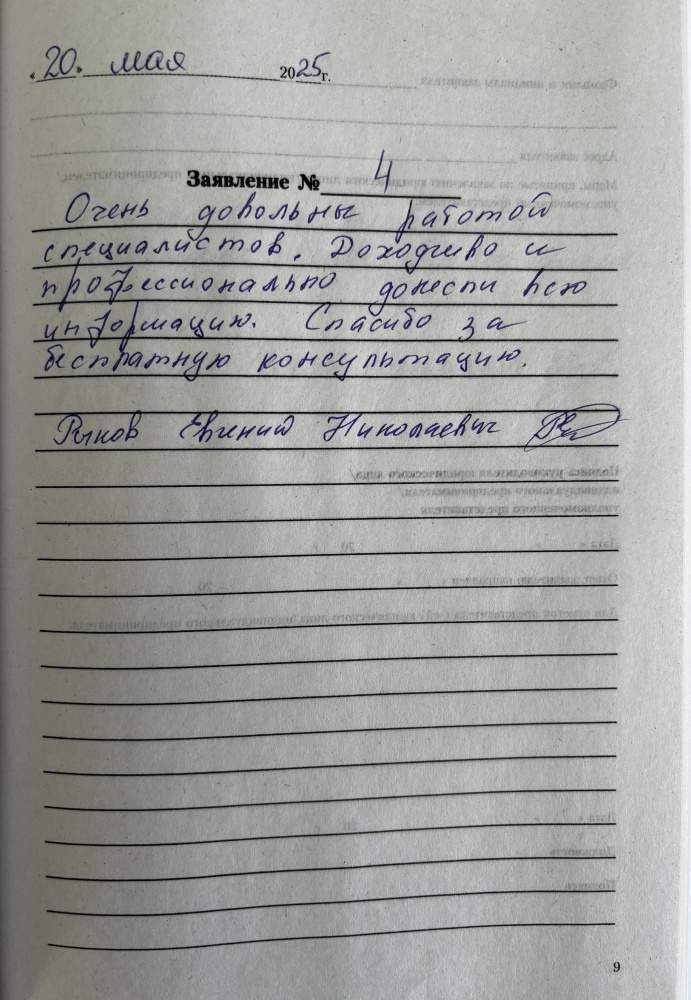 «20» мая 2025 г.
Заявление № 4
Очень довольны работой
специалистов. Доходчиво и
профессионально донесли всю
информацию. Спасибо за
бесплатную консультацию.
Рыков Евгений Николаевич
9